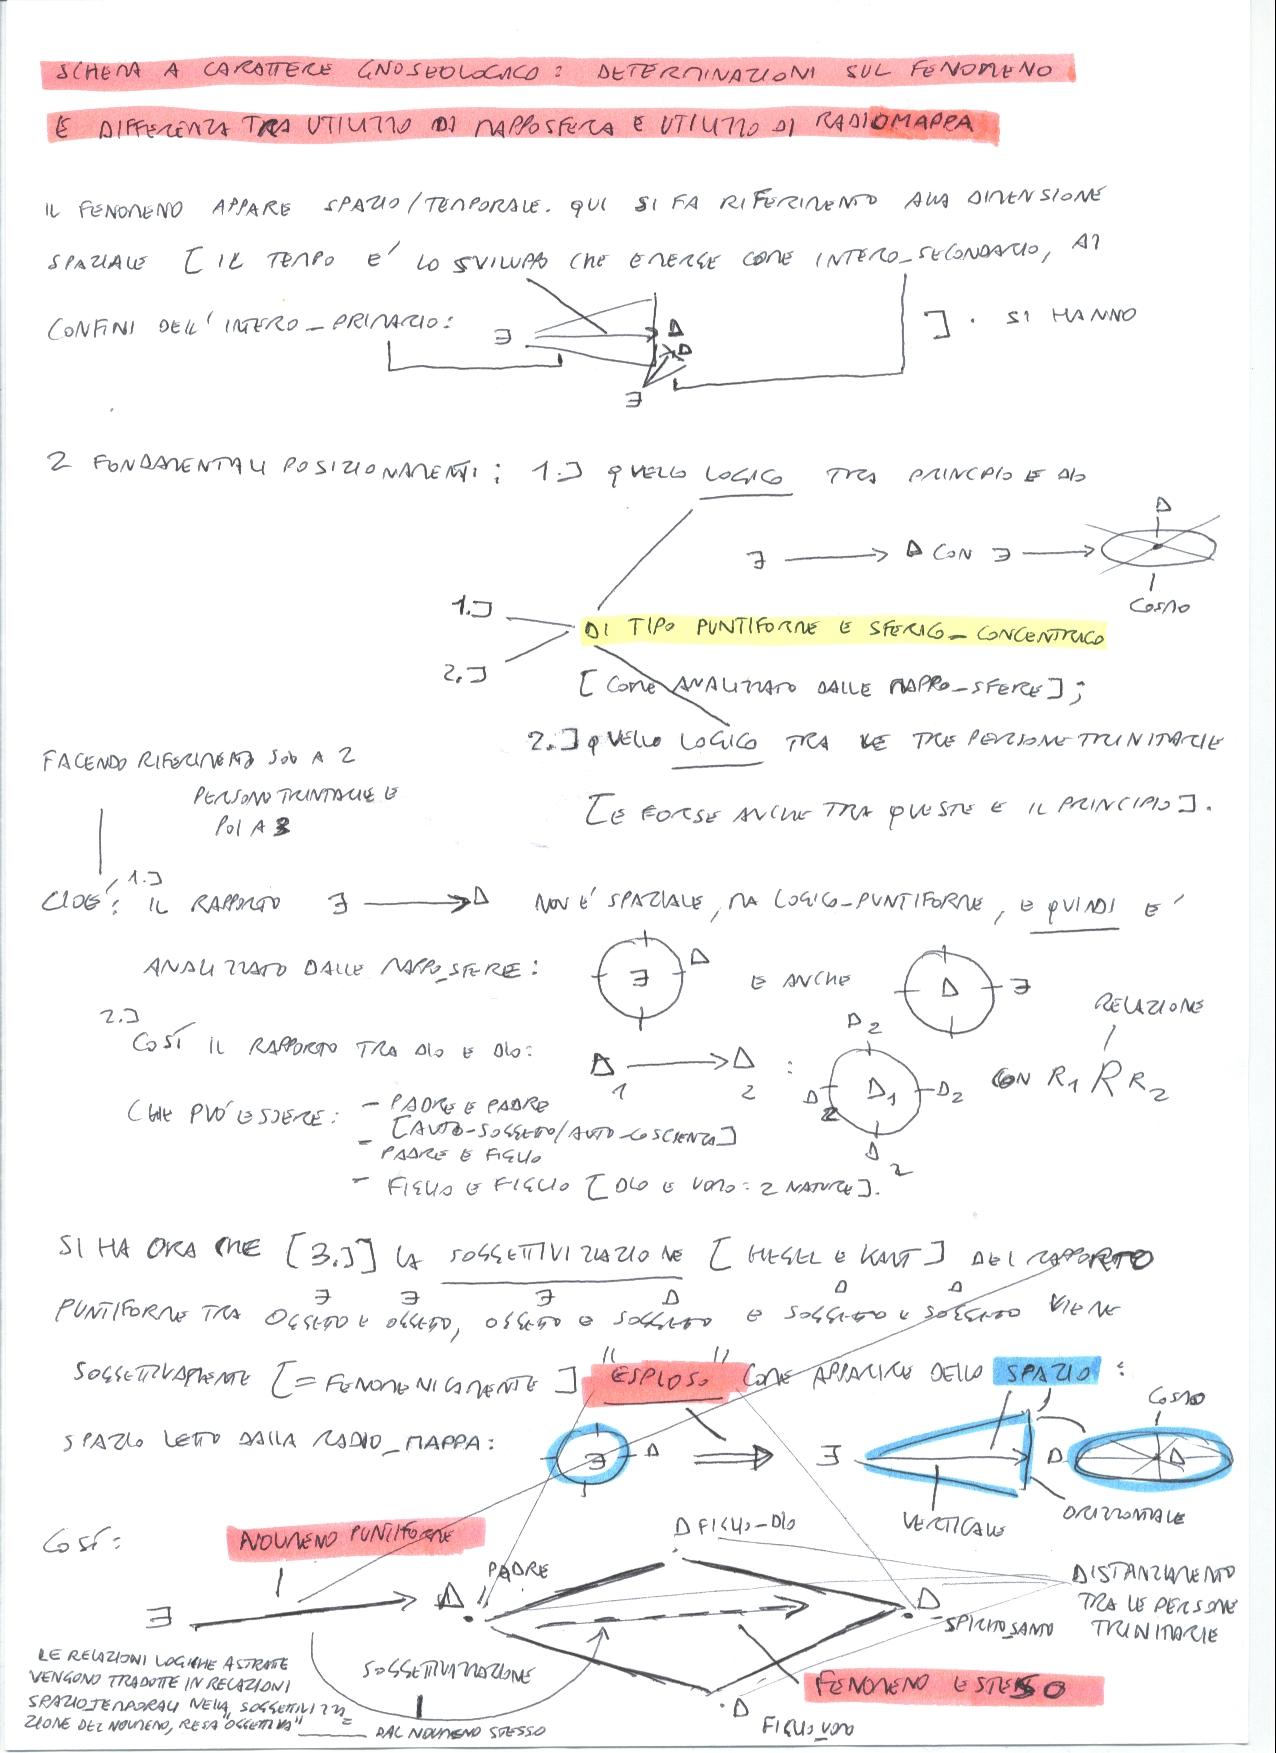 SCHEMA A CARATTERE GNOSEOLOGICO: DETERMINAZIONI SUL FENOMENO
E DIFFERENZA TRA UTILIZZO DI MAPPOSFERA E UTILIZZO DI RADIOMAPPA
IL FENOMENO APPARE SPAZIO/TEMPORALE. QUI SI FA RIFERIMENTO ALLA DIMENSIONE
SPAZIALE [IL TEMPO E' LO SVILUPPO CHE EMERGE COME INTERO_SECONDARIO, AI
CONFINI DELL'INTERO_PRIMARIO:
∃ Δ
Δ
∃
]. SI HANNO
2 FONDAMENTALI POSIZIONAMENTI: 1.] QUELLO LOGICO TRA PRINCIPIO E DIO
Δ
∃ Δ CON ∃
COSMO
1.]
2.]
DI TIPO PUNTIFORME E SFERICO_CONCENTRICO
[COME ANALIZZATO DALLE MAPPO_SFERE];
2.] QUELLO LOGICO TRA LE TRE PERSONE TRINITARIE
[E FORSE ANCHE TRA QUESTE E IL PRINCIPIO].
FACENDO RIFERIMENTO SOLO A 2
PERSONE TRINITARIE E
POI A 3
CIOE': 1.] IL RAPPORTO ∃ Δ NON E' SPAZIALE, MA LOGICO-PUNTIFORME, E QUINDI E'
ANALIZZATO DALLE MAPPO_SFERE: ∃ Δ E ANCHE Δ ∃
RELAZIONE
2.]
COSÍ IL RAPPORTO TRA DIO E DIO: Δ1 Δ2 : Δ1 Δ2 Δ2 Δ2 Δ2 CON R1 R R2
CHE PUO' ESSERE: - PADRE E PADRE
[AUTO-SOGGETTO/AUTO-COSCIENZA]
- PADRE E FIGLIO
- FIGLIO E FIGLIO [DIO E UOMO: 2 NATURE].
SI HA ORA CHE [3.]] LA SOGGETTIVIZZAZIONE [HEGEL E KANT] DEL RAPPORTO
∃ ∃ ∃ Δ Δ Δ
PUNTIFORME TRA OGGETTO E OGGETTO, OGGETTO E SOGGETTO E SOGGETTO E SOGGETTO VIENE
SOGGETTIVAMENTE [= FENOMENICAMENTE] "ESPLOSO" COME APPARIRE DELLO SPAZIO:
SPAZIO LETTO DALLA RADIO_MAPPA: ∃ Δ ∃ Δ Δ
COSMO
VERTICALE
ORIZZONTALE
COSÍ:
NOUMENO PUNTIFORME
∃ Δ
PADRE
Δ FIGLIO-DIO
Δ
SPIRITO_SANTO
DISTANZIAMENTO
TRA LE PERSONE
TRINITARIE
FENOMENO ESTESO
Δ
FIGLIO_UOMO
SOGGETTIVIZZAZIONE
DAL NOUMENO STESSO
LE RELAZIONI LOGICHE ASTRATTE
VENGONO TRADOTTE IN RELAZIONI
SPAZIO_TEMPORALI NELLA SOGGETTIVIZZA=
ZIONE DEL NOUMENO, RESA "OGGETTIVA"